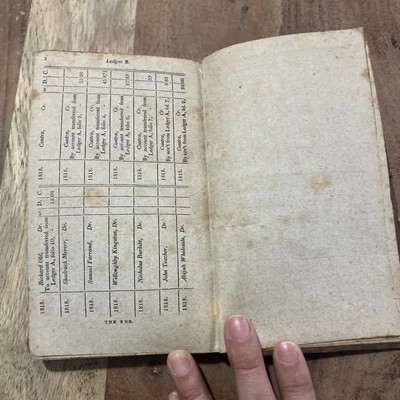 Ledger B.
1818. Richard Old, Dr. D. C. 1818. Contra, Cr. D. C.
To account transferred from
Ledger A, folio 10, 12 08
1818. Shadrach Mercer, Dr. 1818. Contra, Cr.
By account transferred from
Ledger A, folio 3,
1818. Samuel Dr. 1818. Contra, Cr.
By account transferred from
Ledger A, folio 4,
1818. Willoughby Kingston, Dr. 1818. Contra, Cr.
By account transferred from
Ledger A, folio 6,
1818. Nicholas Dr. 1818. Contra, Cr.
By account transferred from
Ledger A, folio 7,
1818. John Teacher, Dr. 1818. Contra, Cr.
By acc't from Ledger A, fol. 7,
1818. Abijah Wholesale, Dr. 1818. Contra, Cr.
By acc't from Ledger A, fol.
THE END.